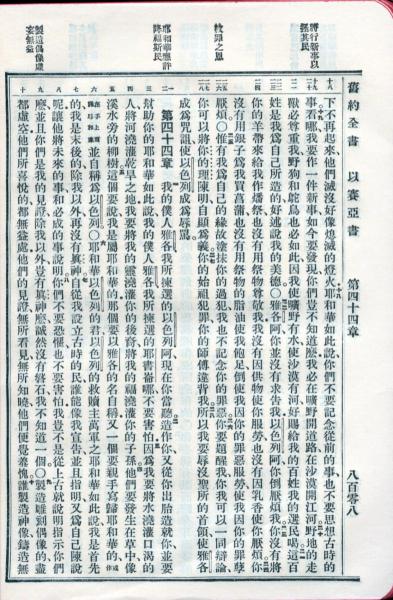 將行新事以
拯其民
赦罪之恩
耶和華應許
降福斯民
製造偶像虛
妄無益
舊約全書　以賽亞書　第四十四章　八百零八
下不再起來他們滅沒好像熄滅的燈火耶和華如此說你們不要記念從前的事也不要思想古時的
事看哪我要作一件新事如今要發現你們豈不知道麼我必在曠野開道路在沙漠開江河野地的走
獸必尊重我野狗和鴕鳥也必如此因我使曠野有水使沙漠有河好賜給我的百姓我的選民喝這百
姓是我為自己所造的好述說我的美德〇雅各阿你並沒有求告我以色列阿你倒厭煩我你沒有將
你的羊帶來給我作燔祭也沒有用祭物尊敬我我沒有因供物使你服勞也沒有因乳香使你厭煩你
沒有用銀子為我買菖蒲也沒有用祭物的脂油使我飽足倒使我因你的罪惡服勞使我因你的罪孽
厭煩〇惟有我為自己的緣故塗抹你的過犯我也不記念你的罪惡你要題醒我你我可以一同辯論
你可以將你的理陳明自顯為義你的始祖犯罪你的師傅違背我所以我要辱沒聖所的首領使雅各
成為咒詛使以色列成為辱罵
第四十四章　我的僕人雅各我所揀選的以色列阿現在你當聽造作你又從你出胎造就你並要
幫助你的耶和華如此說我的僕人雅各我所揀選的耶書崙哪不要害怕因為我要將水澆灌口渴的
人將河澆灌乾旱之地我要將我的靈澆灌你的後裔將我的福澆灌你的子孫他們要發生在草中像
溪水旁的柳樹這個要說我是屬耶和華的那個要以雅各的名自稱又一個要親手寫歸耶和華的
並自稱為以色列〇耶和華以色列的君以色列的救贖主萬軍之耶和華如此說我是首先
的我是末後的除我以外再沒有真神自從我設立古時的民誰能像我宣告並且指明又為自己陳說
呢讓他將未來的事和必成的事說明你們不要恐懼也不要害怕我豈不是從上古就說明指示你們
麼並且你們是我的見證除我以外豈有真神麼誠然沒有磐石我不知道一個〇製造雕刻偶像的盡
都虛空他們所喜悅的都無益處他們的見證無所看見無所知曉他們便覺羞愧誰製造神像鑄造無